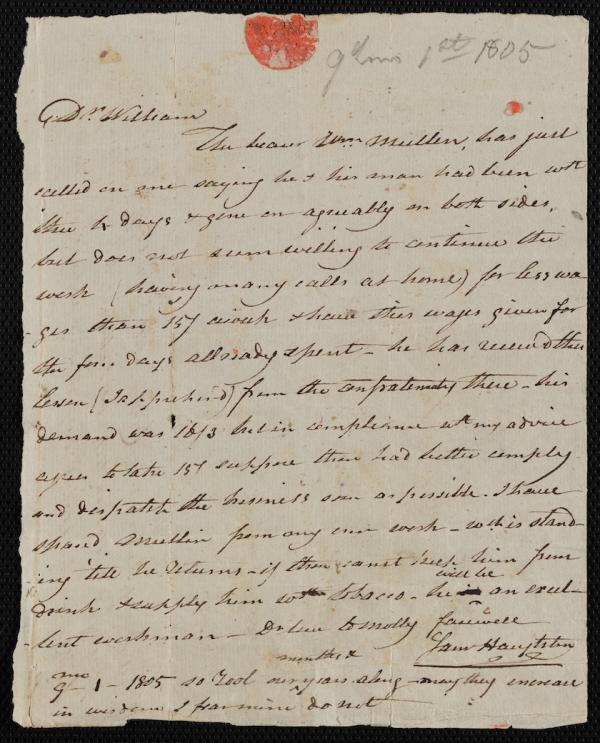 9th mo 1st 1805
Dr. William
The bearer Wm Mullen, has just
called on me saying he & his man had been with
thee 4 days & gone on agreeably on both sides,
but does not seem willing to continue the
work (having many calls at home) for less wa-
ges than 15/ a week & have this wages given for
the four days allready spent – he has received this
lesson (I apprehend) from the confraternity there – his
demand was 18/3 but in complience with my advice
agrees to take 15/ suppose thou had better comply
and dispatch the business soon as possible. I have
spared Mullin from my own work – wch is stand-
ing till he returns – if thou canst keep him from
drink & supply him with tobacco – he will be an excel-
lent workman – Dr love to Molly farewell
Saml Haughton
9 mo – 1 – 1805 so rool our months & years along – may they increase
in wisdom I fear mine do not